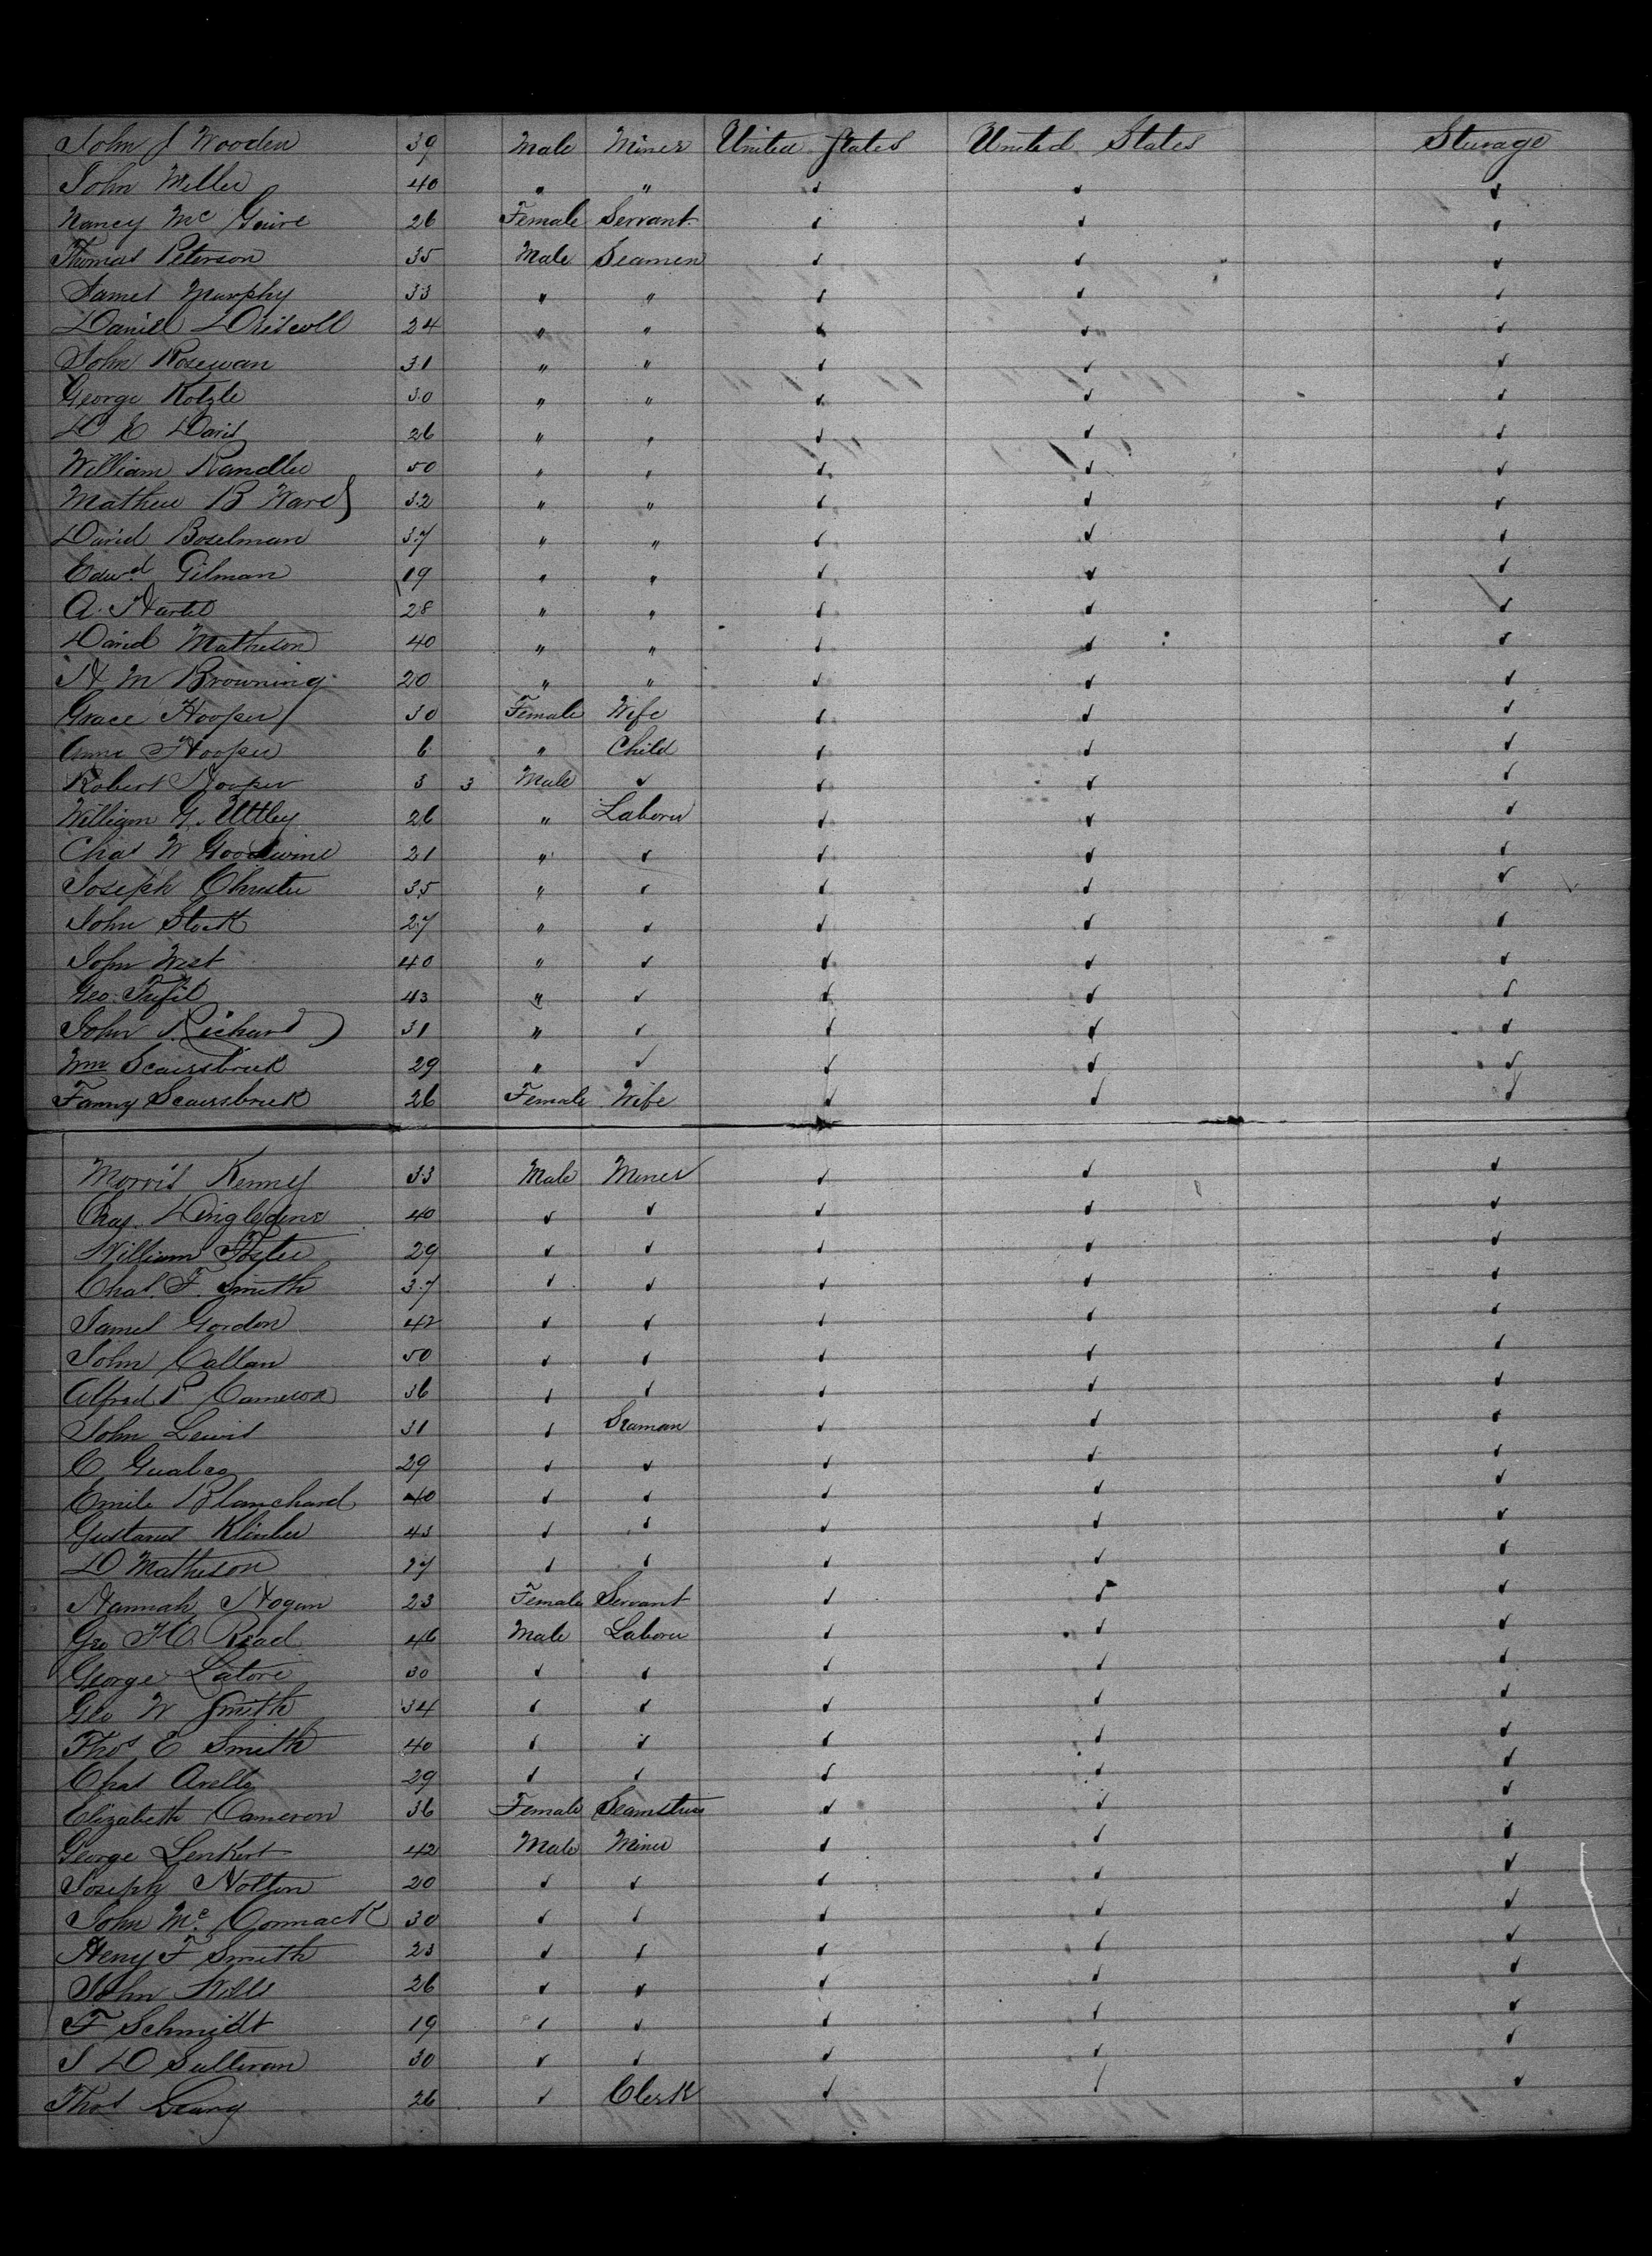 John J Wooden 39 Male Miner United States United States Sturage
John Miller 40 " " ✓ ✓ ✓
Nancy Mc Guire 26 Female Servant ✓ ✓ ✓
Thomas Peterson 35 Male Seamen ✓ ✓ ✓
James Murphy 33 " " ✓ ✓ ✓
Daniel Driscoll 24 " " ✓ ✓ ✓
John Rosewan 31 " " ✓ ✓ ✓
George Kotzle 30 " " ✓ ✓ ✓
D E Davis 26 " " ✓ ✓ ✓
William Randler 50 " " ✓ ✓ ✓
Mathew B Ward 32 " " ✓ ✓ ✓
David Boselman 37 " " ✓ ✓ ✓
Edwd Gilman 19 " " ✓ ✓ ✓
A. 28 " " ✓ ✓ ✓
David Matheson 40 " " ✓ ✓ ✓
H M Browning 20 " " ✓ ✓ ✓
Grace Hooper 30 Female Wife ✓ ✓ ✓
Anna Hooper 6 " Child ✓ ✓ ✓
Robert Hooper 3 3 Male ✓ ✓ ✓ ✓
William G. Uttley 26 " Laborer ✓ ✓ ✓
Chas W Goodwine 21 " ✓ ✓ ✓ ✓
Joseph Christie 35 " ✓ ✓ ✓ ✓
John Stock 27 " ✓ ✓ ✓ ✓
John West 40 " ✓ ✓ ✓ ✓
Geo. 43 " ✓ ✓ ✓ ✓
John Richard 31 " ✓ ✓ ✓ ✓
Wm Scairsbrick 29 " ✓ ✓ ✓ ✓
Fanny Scairsbrick 26 Female Wife ✓ ✓ ✓
Morris Kenny 33 Male Miner ✓ ✓ ✓
Chas. Dingledine 40 ✓ ✓ ✓ ✓ ✓
William Foster 29 ✓ ✓ ✓ ✓ ✓
Chas. F. Smith 37 ✓ ✓ ✓ ✓ ✓
James Gordon 42 ✓ ✓ ✓ ✓ ✓
John Callan 50 ✓ ✓ ✓ ✓ ✓
Alfred P Cameron 36 ✓ ✓ ✓ ✓ ✓
John Lewis 31 ✓ Seaman ✓ ✓ ✓
C Gualco 29 ✓ ✓ ✓ ✓ ✓
Emile Blanchard 40 ✓ ✓ ✓ ✓ ✓
Gustavus Klinber 43 ✓ ✓ ✓ ✓ ✓
D Matheson 27 ✓ ✓ ✓ ✓ ✓
Hannah Hogan 23 Female Servant ✓ ✓ ✓
Geo H. Read 46 Male Laborer ✓ ✓ ✓
George Latore 30 ✓ ✓ ✓ ✓ ✓
Geo W Smith 34 ✓ ✓ ✓ ✓ ✓
Thos E Smith 40 ✓ ✓ ✓ ✓ ✓
Chas 29 ✓ ✓ ✓ ✓ ✓
Elizabeth Cameron 36 Female Seamstress ✓ ✓ ✓
George Lenkert 42 Male Miner ✓ ✓ ✓
Joseph Notton 20 ✓ ✓ ✓ ✓ ✓
John Mc. Cormack 30 ✓ ✓ ✓ ✓ ✓
Heny F Smith 23 ✓ ✓ ✓ ✓ ✓
John Wills 26 ✓ ✓ ✓ ✓ ✓
F Schmidt 19 ✓ ✓ ✓ ✓ ✓
J D Sullivan 30 ✓ ✓ ✓ ✓ ✓
Thos Leary 26 ✓ Clerk ✓ ✓ ✓